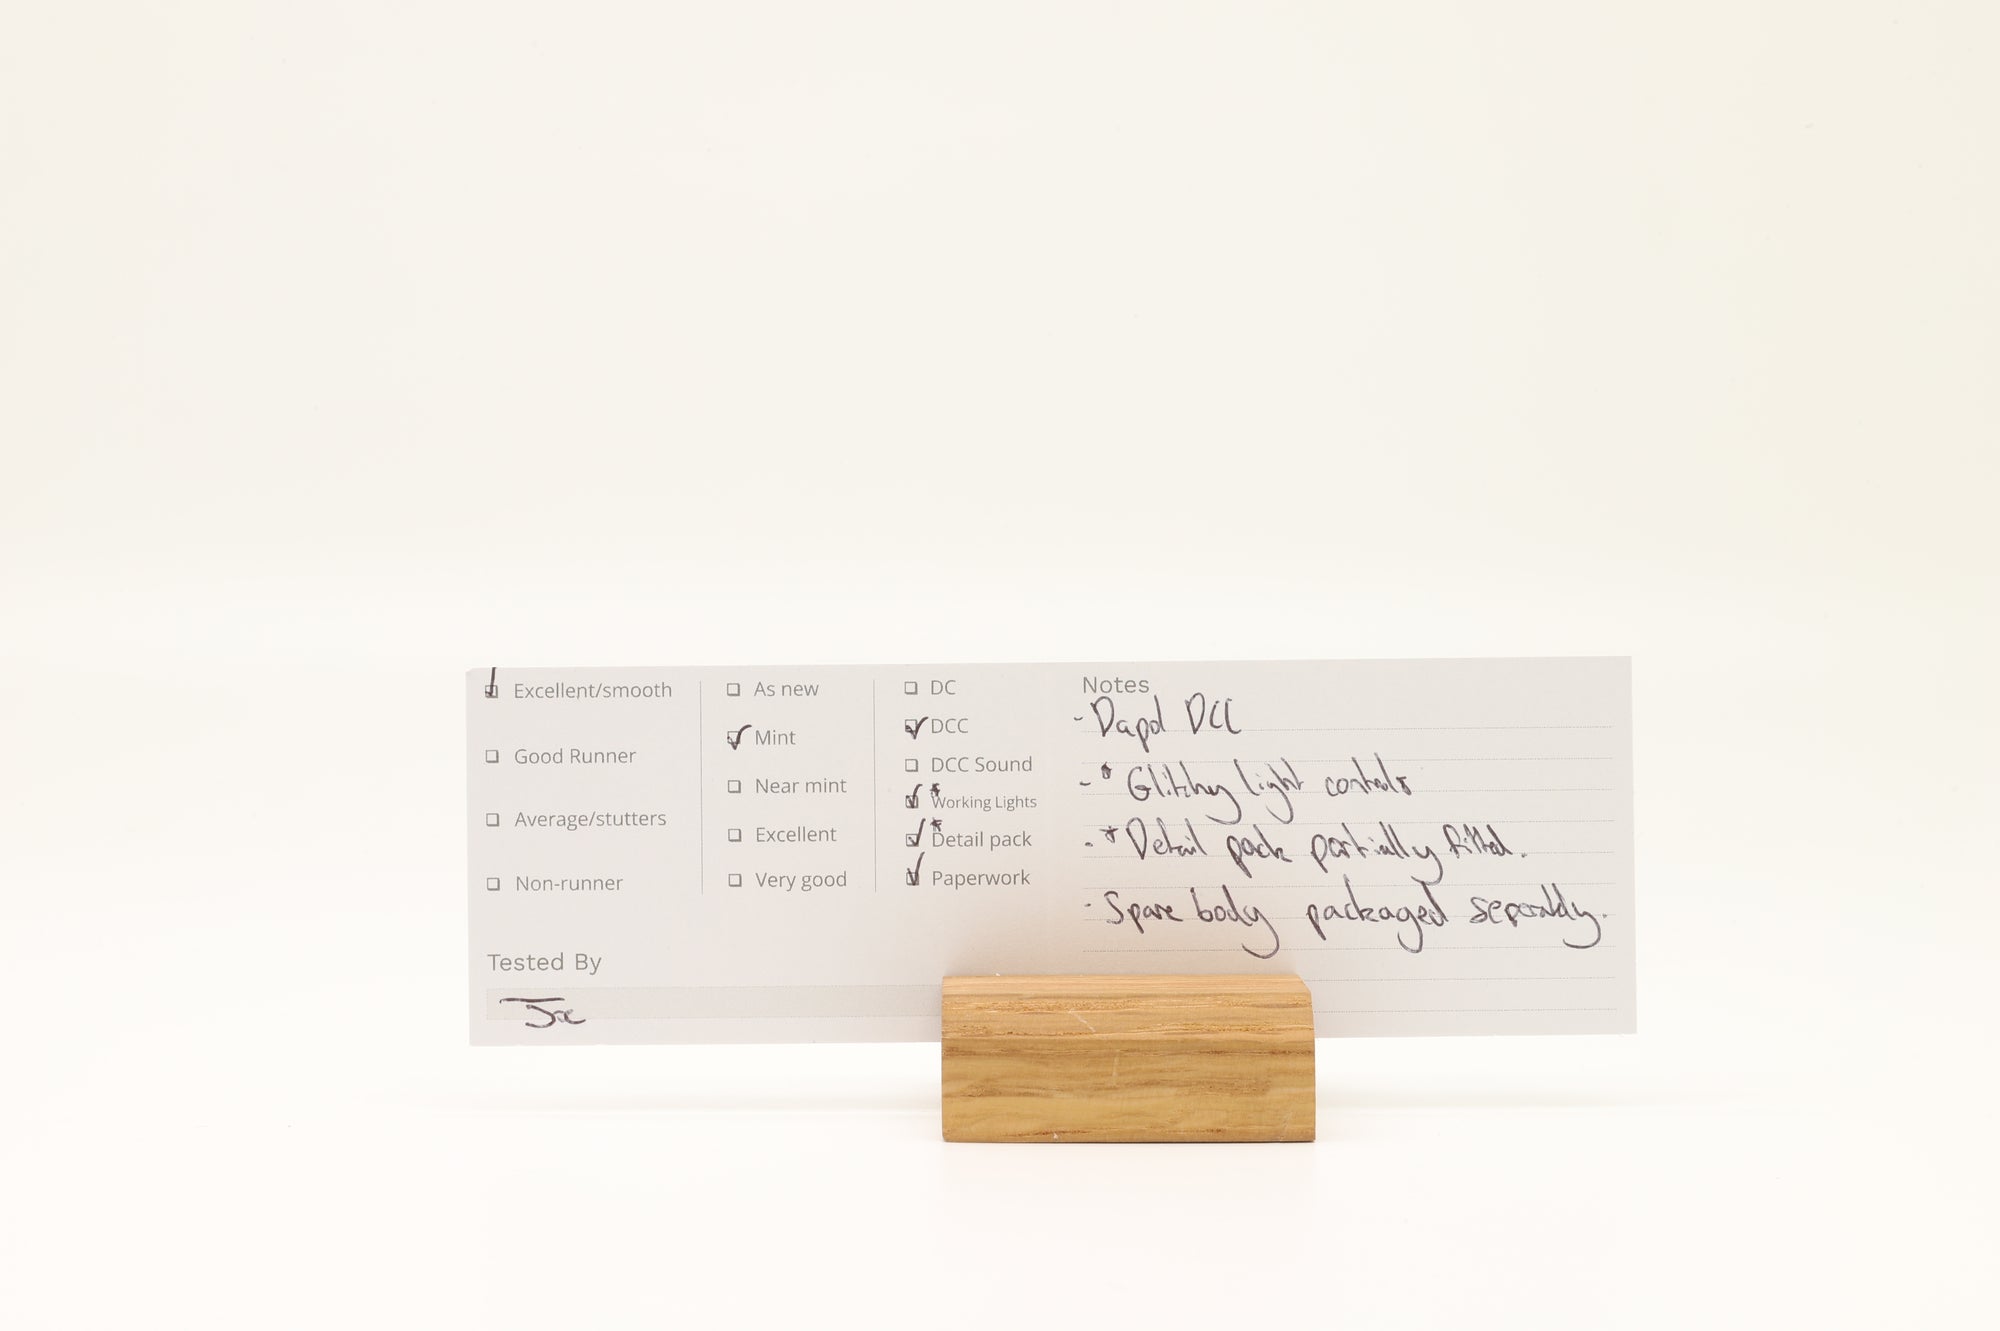 Excellent/smooth
Good Runner
Average/stutters
Non-runner
As new
Mint
Near mint
Excellent
Very good
DC
DCC
DCC Sound
*Working Lights
*Detail pack
Paperwork
Notes
- Dapol DCC
- * Glitchy light controls
- * Detail pack partially fitted.
- Spare body packaged seperatly.
Tested By
Joe